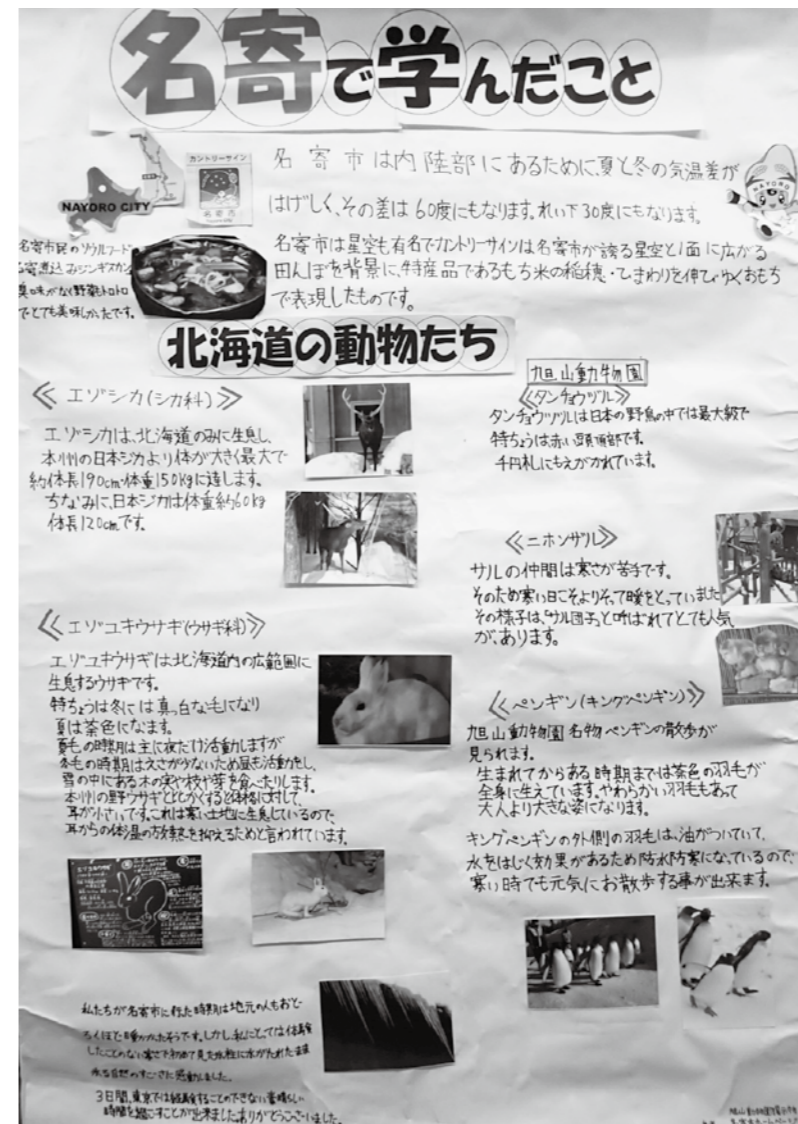 名寄で学んだこと
NAYORO CITY
カントリーサイン
名寄市
NAYORO
名寄市は内陸部にあるために、夏と冬の気温差が
はげしく、その差は60度にもなります。れい下30度にもなります。
名寄市は星空も有名でカントリーサインは名寄市が誇る星空と1面に広がる
田んぼを背景に、特産品であるもち米の稲穂・ひまわりを伸てゆくおもち
で表現したものです。
名寄市民のソウルフード
名寄煮込みジンギスカン
臭味がなく野菜もトロトロ
でとても美味しかったです。
北海道の動物たち
≪エゾシカ(シカ科)≫
エゾシカは、北海道のみに生息し、
本州の日本ジカより体が大きく最大で
約体長190cm・体重150kgに達します。
ちなみに、日本ジカは体重約60kg
体長120cmです。
≪エゾユキウサギ(ウサギ科)≫
エゾユキウサギは北海道内の広範囲に
生息するウサギです。
特ちょうは冬には真っ白な毛になり
夏は茶色になます。
夏毛の時期は主に夜だけ活動しますが
冬毛の時期はえさが少ないため昼も活動をし、
雪の中にある木の実や枝や芽を食べたりします。
本州の野ウサギとひかくすると体格に対して、
耳が小さいです。これは寒い土地に生息しているので、
耳からの体温の放熱を抑えるためと言われています。
エゾユキウサギ
私たちが名寄市に行った時期は地元の人もおど
ろくほど暖かかったそうです。しかし私にとっては体験
したことのない寒さで初めて見た氷柱に水がたれたまま
氷る自然のすごさに感動しました。
3日間、東京では経験することのできない素晴らしい
時間を過ごすことが出来ました。ありがとうございました。
旭山動物園
≪タンチョウヅル≫
タンチョウヅルは日本の野鳥の中では最大級で
特ちょうは赤い頭頂部です。
千円札にもえがかれています。
≪ニホンザル≫
サルの仲間は寒さが苦手です。
そのため寒い日こそよりそって暖をとっていました
その様子は、「サル団子」と呼ばれてとても人気
が、あります。
≪ペンギン(キングペンギン)≫
旭山動物園名物ペンギンの散歩が
見られます。
生まれてからある時期までは茶色の羽毛が
全身に生えています。やわらかい羽毛もあって
大人より大きな姿になります。
キングペンギンの外側の羽毛は、油がついていて、
水をはじく効果があるため防水防寒になっているので、
寒い時でも元気にお散歩する事が出来ます。